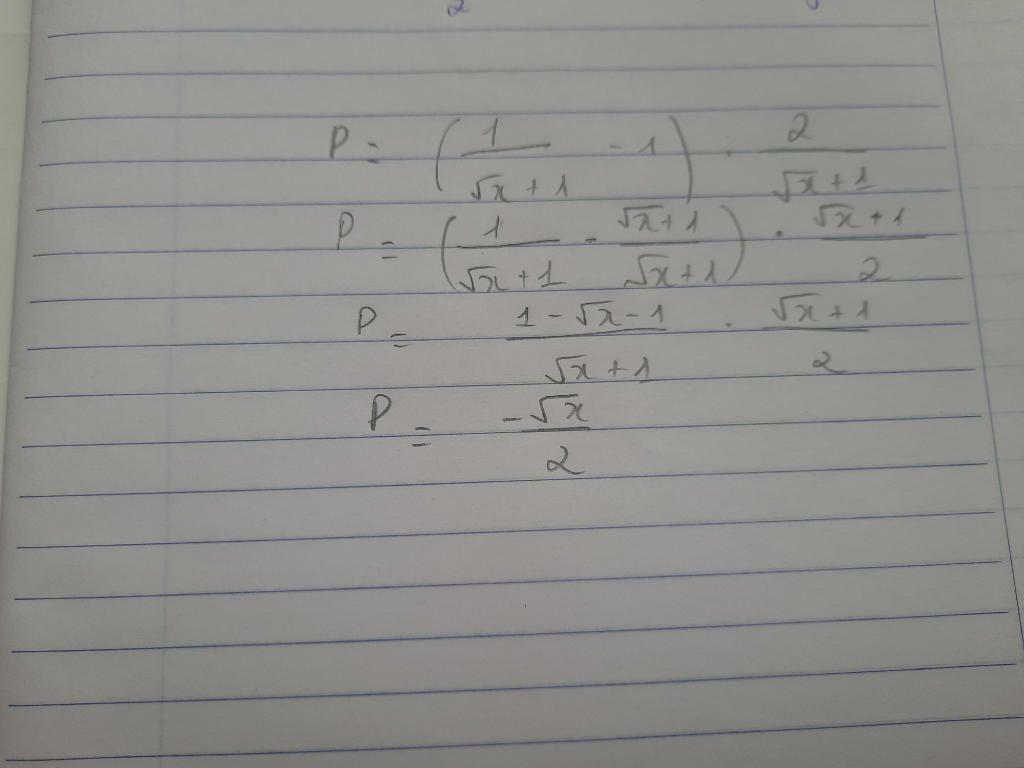 P = ( 1 / √x + 1 - 1 ) . 2 / √x + 1
P = ( 1 / √x + 1 - √x + 1 / √x + 1 ) . √x + 1 / 2
P = 1 - √x - 1 / √x + 1 . √x + 1 / 2
P = -√x / 2